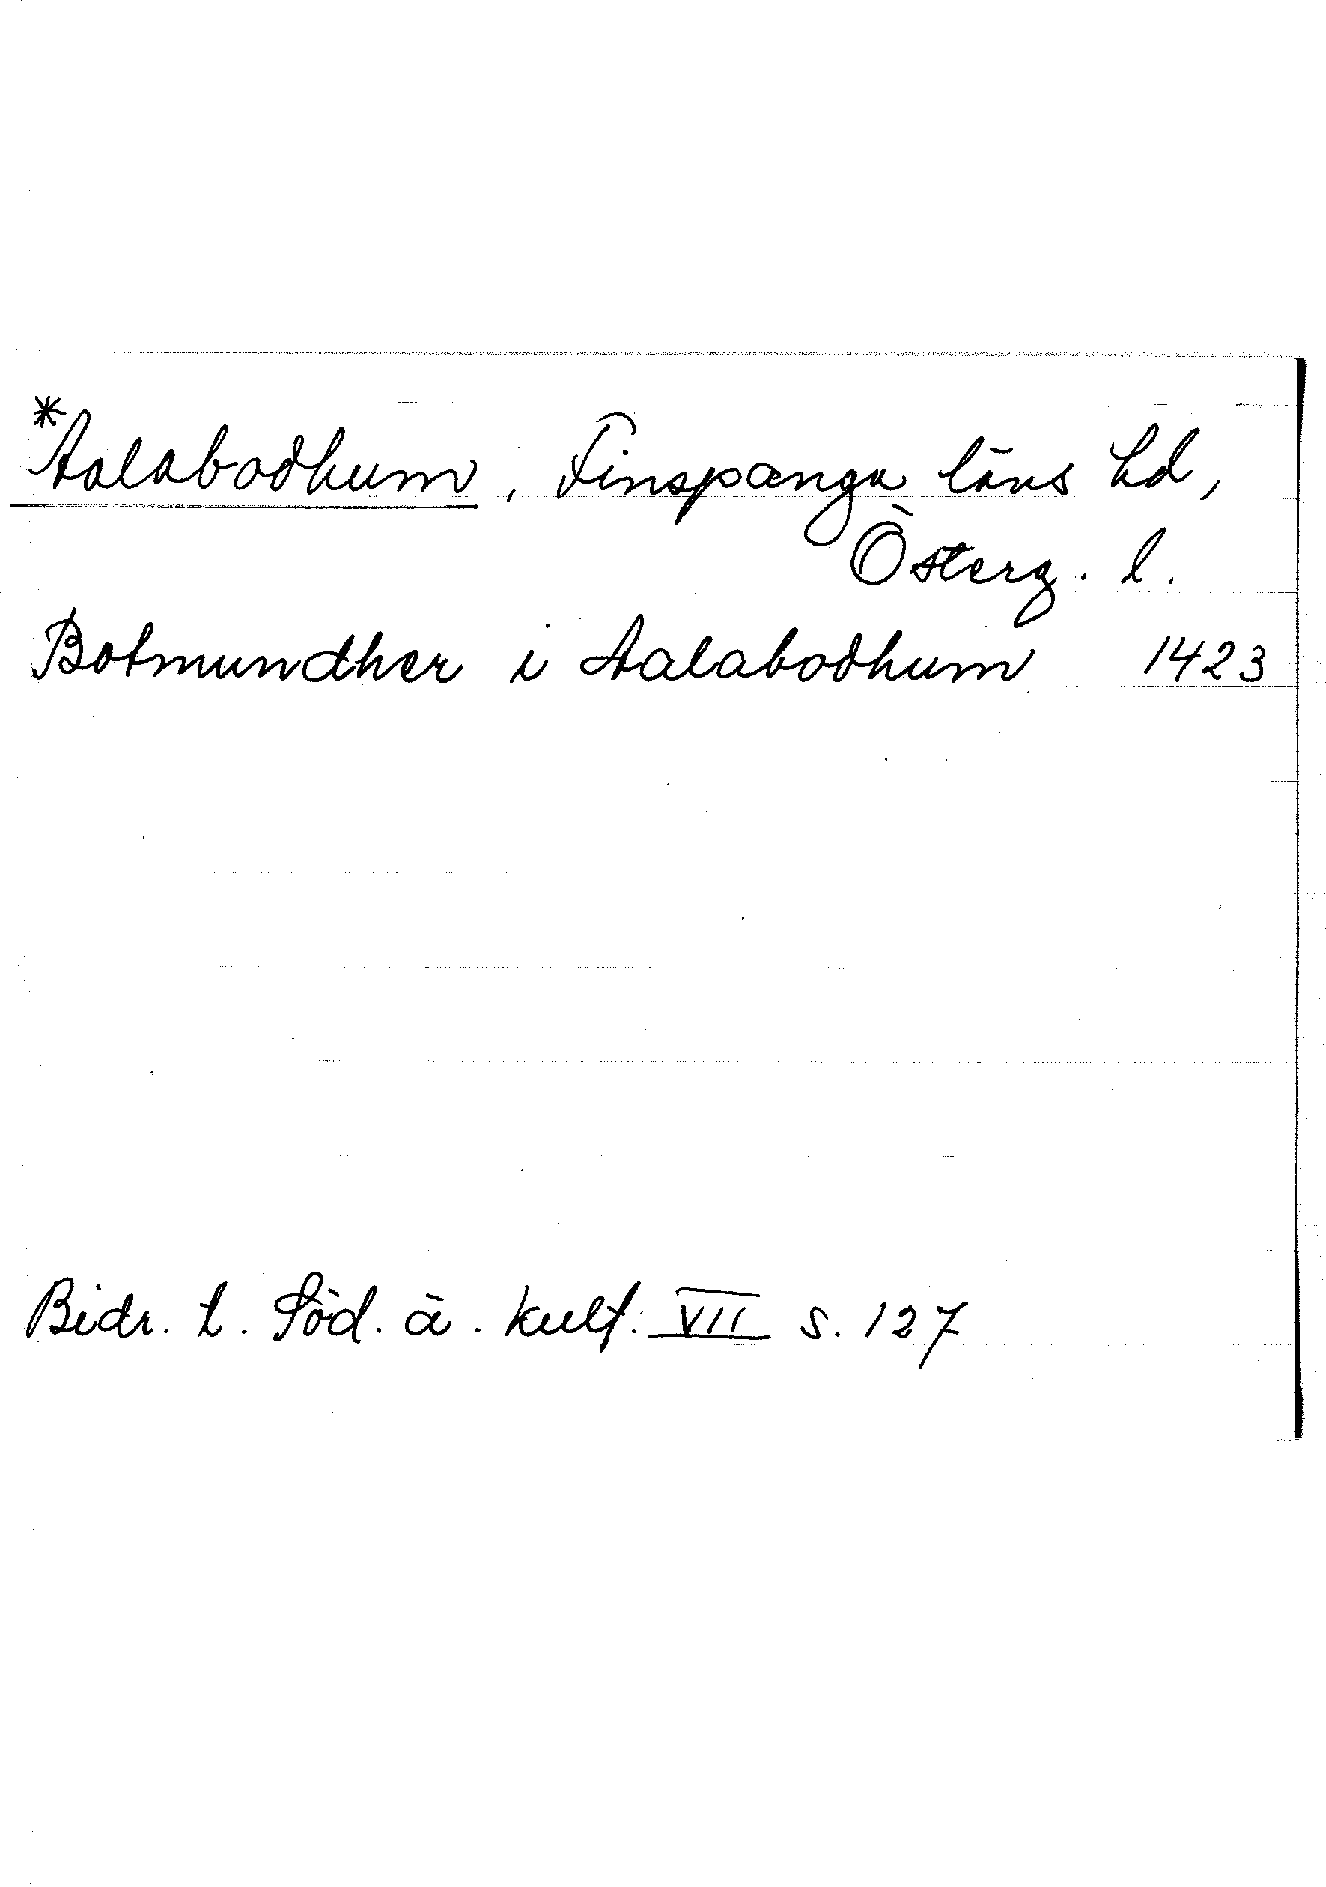 *Aalabodhum, Finspånga läns hd,
Österg. l.
Botmundher i Aalabodhum 1423
Bidr. t. Söd. ä. kult. VII s. 127